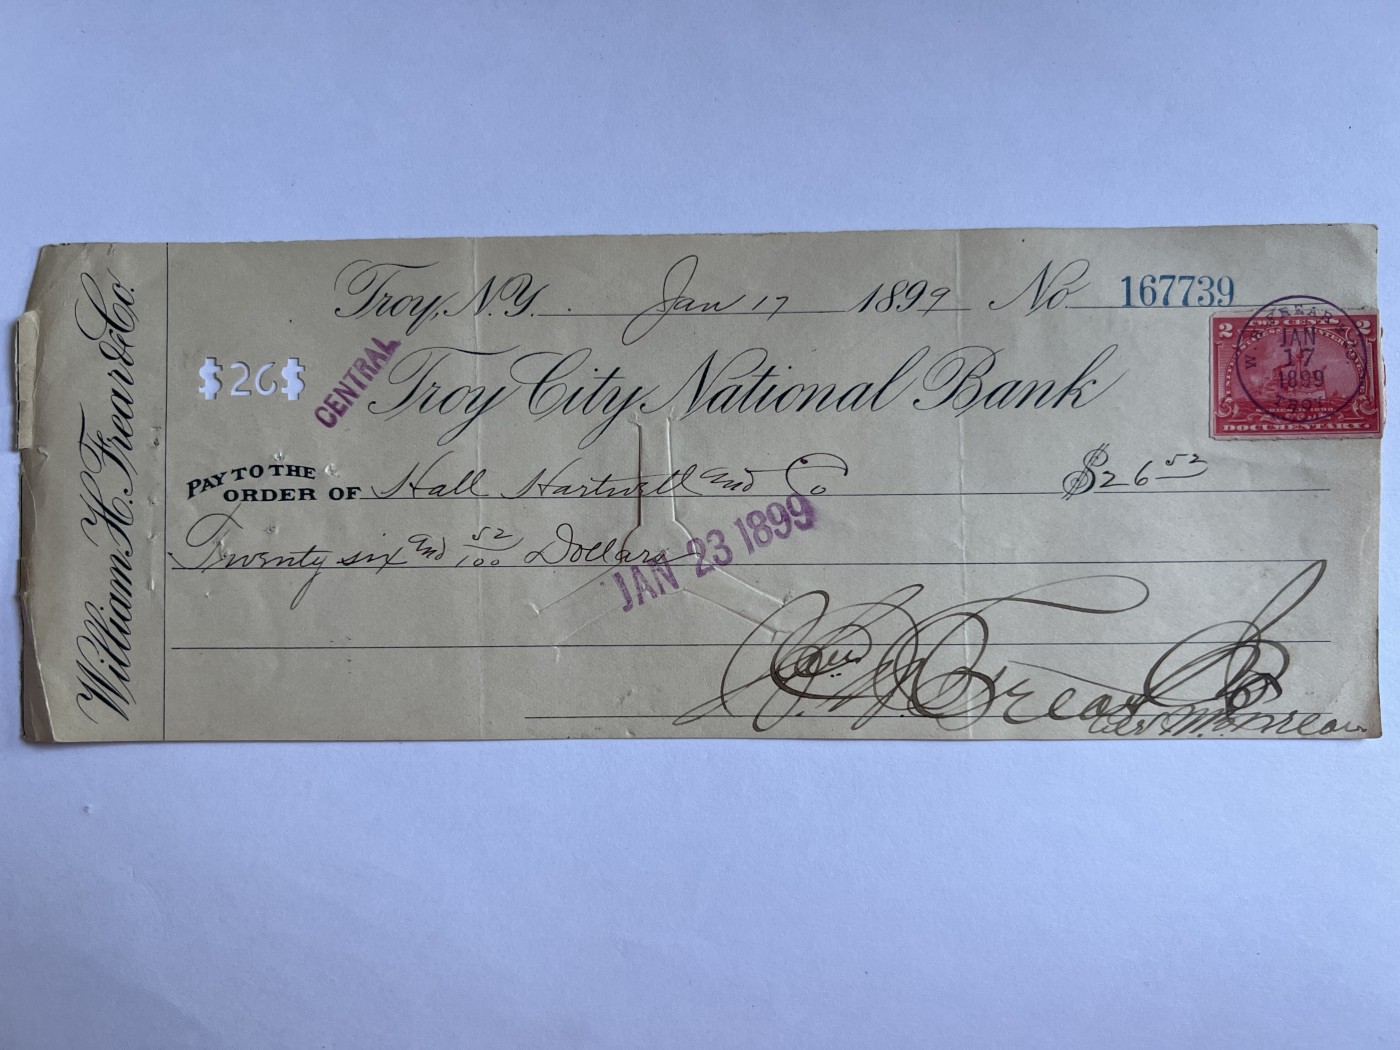 William H. Frear & Co.
Troy, N.Y. Jan 17 1899 No. 167739
$26$
CENTRAL
Troy City National Bank
2 2
JAN
17
1899
TROY
DOCUMENTARY.
PAY TO THE
ORDER OF Hall Hartwell and Co $26 52
Twenty six and 52/100 Dollars
JAN 23 1899
Wm H. Frear & Co